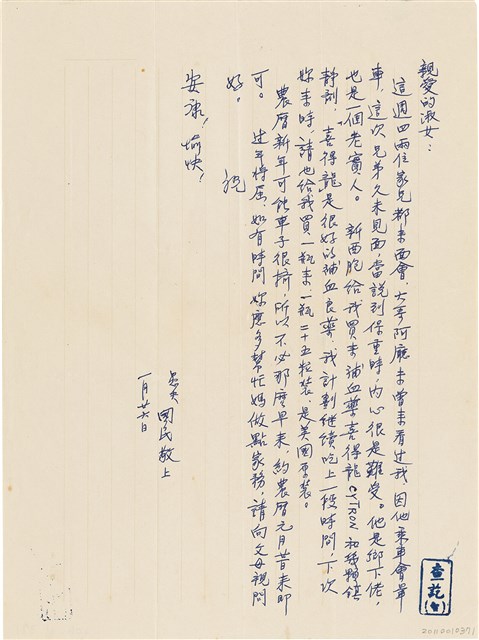 親愛的淑女：
這週四兩位家兄都來面會，大哥阿廳未曾來看过我，因他乘車會暈
車，這次兄弟久未見面，當說到保重時，內心很是難受。他是鄉下佬，
也是一個老實人。 新西胞給我買來補血藥喜得龍CYTRON和鎮
靜劑，喜得龍是很好的補血良藥，我計劃継續吃上一段時間，下次
妳來時，請也給我買一瓶來，一瓶二十五粒裝，是美國原裝。
農曆新年可能車子很擠，所以不必那麼早來，約農曆元月昔來即
可。 过年將屆，如有時間妳應多幫忙媽做點家務，請向父母親問
好。 祝
安康！愉快！
愚夫 國民敬上
一月廿六日
查訖